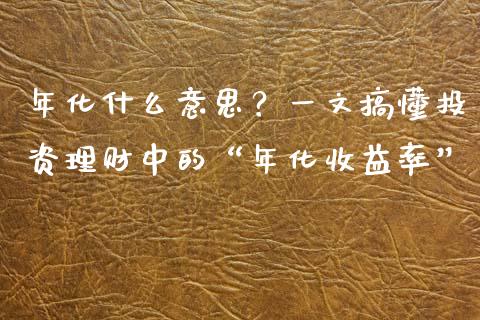 年化什么意思？一文搞懂投
资理财中的“年化收益率”